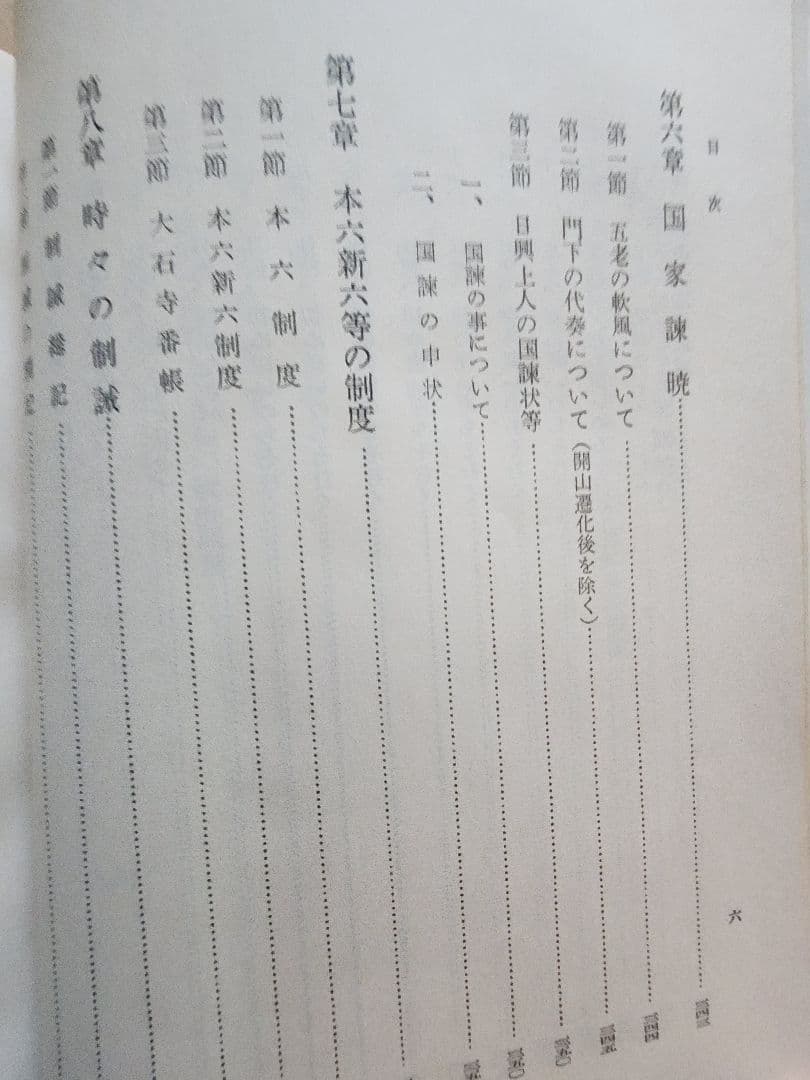 目次
六
第六章 国家諫暁
第一節 五老の軟風について
第二節 門下の代奏について(開山遷化後を除く)
第三節 日興上人の国諫状等
一、国諫の事について
二、国諫の申状
第七章 本六新六等の制度
第一節 本六制度
第二節 本六新六制度
第三節 大石寺番帳
第八章 時々の制誡
第一節 制誡雑記